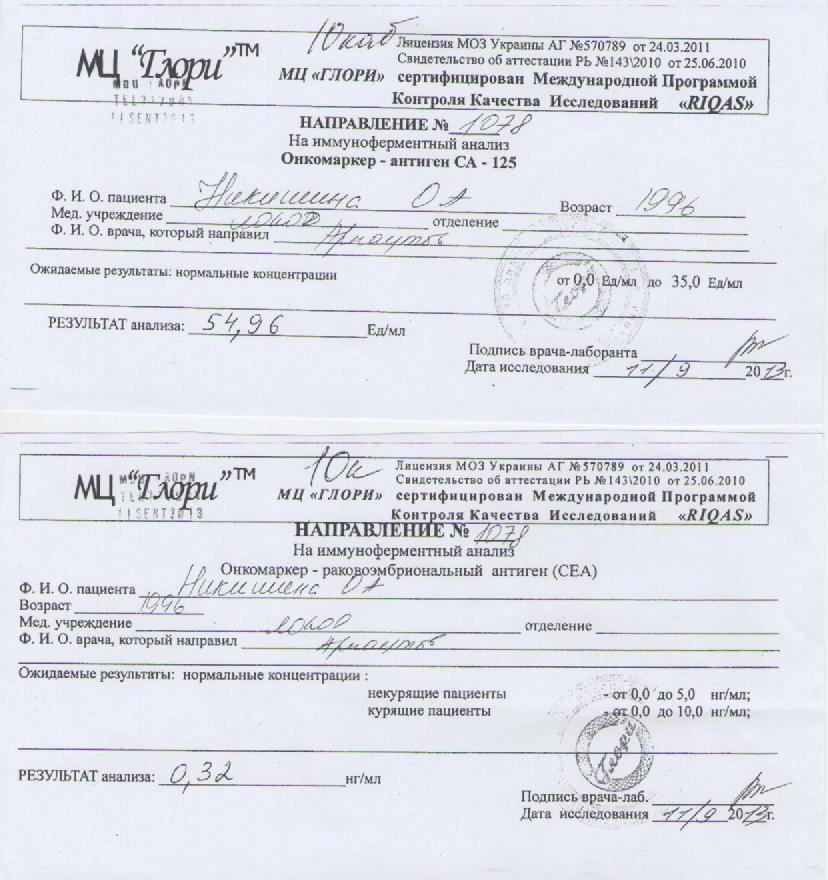 10 каб
МЦ “Глори”™
11 SENT 2013
Лицензия МОЗ Украины АГ №570789 от 24.03.2011
Свидетельство об аттестации РЬ №143\2010 от 25.06.2010
МЦ «ГЛОРИ» сертифицирован Международной Программой
Контроля Качества Исследований «RIQAS»
НАПРАВЛЕНИЕ № 1078
На иммуноферментный анализ
Онкомаркер - антиген СА - 125
Ф. И. О. пациента Никишина О А Возраст 1996
Мед. учреждение ЛОКОД отделение
Ф. И. О. врача, который направил
Ожидаемые результаты: нормальные концентрации от 0,0 Ед/мл до 35,0 Ед/мл
РЕЗУЛЬТАТ анализа: 54,96 Ед/мл
Подпись врача-лаборанта
Дата исследования 11/9 2013г.
10к
МЦ “Глори”™
11 SENT 2013
Лицензия МОЗ Украины АГ №570789 от 24.03.2011
Свидетельство об аттестации РЬ №143\2010 от 25.06.2010
МЦ «ГЛОРИ» сертифицирован Международной Программой
Контроля Качества Исследований «RIQAS»
НАПРАВЛЕНИЕ № 1078
На иммуноферментный анализ
Онкомаркер - раковоэмбриональный антиген (СЕА)
Ф. И. О. пациента Никишина О А
Возраст 1996
Мед. учреждение ЛОКОД отделение
Ф. И. О. врача, который направил
Ожидаемые результаты: нормальные концентрации :
некурящие пациенты - от 0,0 до 5,0 нг/мл;
курящие пациенты - от 0,0 до 10,0 нг/мл;
Глори
РЕЗУЛЬТАТ анализа: 0,32 нг/мл
Подпись врача-лаб.
Дата исследования 11/9 2013г.